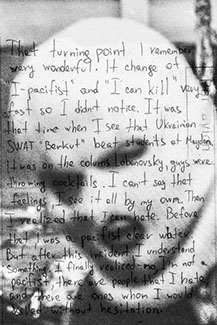 That turning point I remember
very wonderful. It change of
I-pacifist" and "I can kill" very
fast so I didn't notice. It was
that time when I see that Ukrainian
SWAT "Berkut" beat students at Maydan.
It was on the column Lobanovsky, guys were
throwing cocktails. I can't say that
feelings, I see it all by my own. Then
I realized that I can hate. Before
that I was a pacifist clear water.
But after this incident I understand
something. I finally realized - no, I'm not
pacifist, there are people that I hate,
and there are ones whom I would
killed without hesitation.